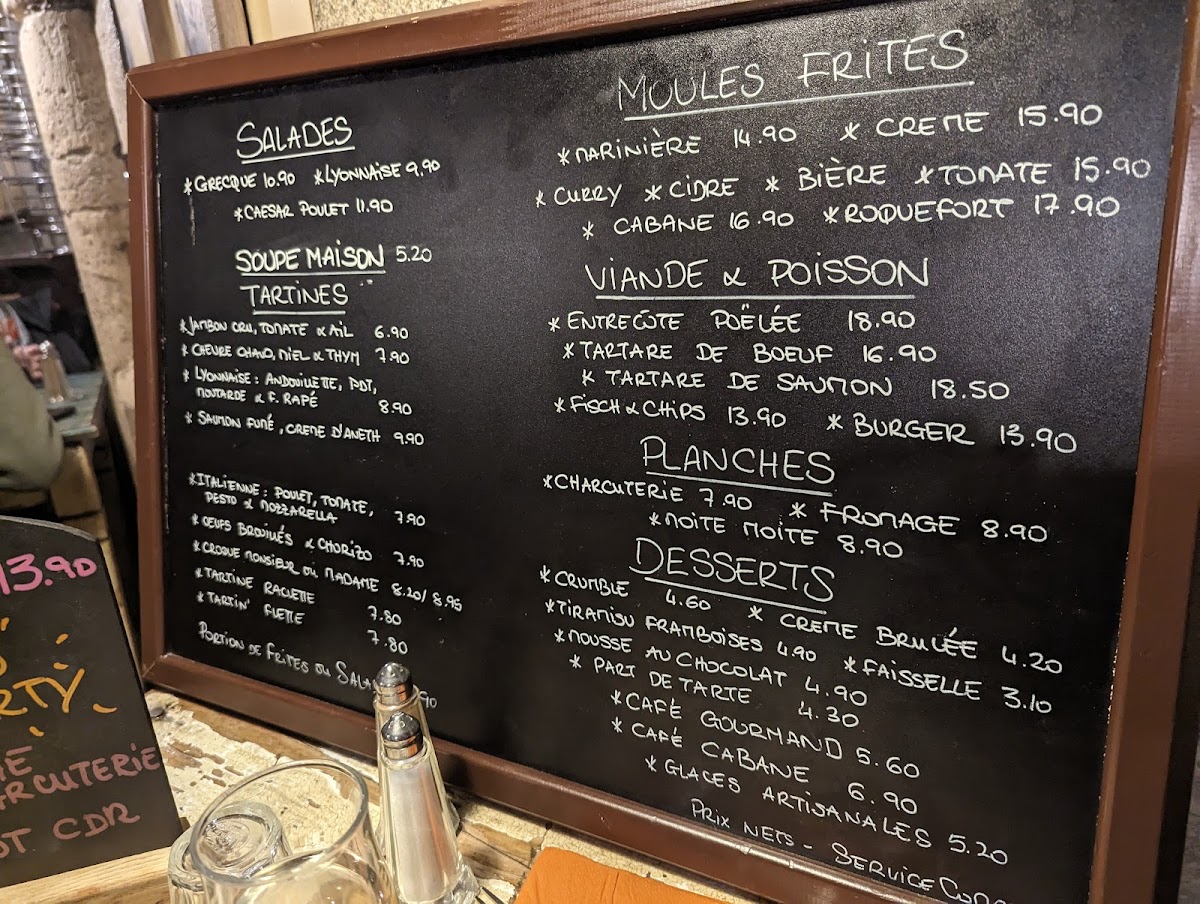 SALADES
*GRECQUE 10.90 *LYONNAISE 9.90
*CAESAR POULET 11.90
SOUPE MAISON 5.20
TARTINES
*JAMBON CRU, TOMATE & AIL 6.90
*CHEVRE CHAUD, MIEL & THYM 7.90
*LYONNAISE : ANDOUILLETTE, PDT,
MOUTARDE & F. RAPÉ 8.90
*SAUMON FUMÉ, CREME D'ANETH 9.90
*ITALIENNE : POULET, TOMATE,
PESTO & MOZZARELLA 7.90
*OEUFS BROUILLÉS & CHORIZO 7.90
*CROQUE MONSIEUR OU MADAME 8.20/8.95
*TARTINE RACLETTE 7.80
*TARTIN' FLETTE 7.80
PORTION DE FRITES OU
MOULES FRITES
*MARINIÈRE 14.90 *CREME 15.90
*CURRY *CIDRE *BIÈRE *TOMATE 15.90
*CABANE 16.90 *ROQUEFORT 17.90
VIANDE & POISSON
*ENTRECÔTE POËLÉE 18.90
*TARTARE DE BOEUF 16.90
*TARTARE DE SAUMON 18.50
*FISCH & CHIPS 13.90 *BURGER 13.90
PLANCHES
*CHARCUTERIE 7.90 *FROMAGE 8.90
*MOITE MOITE 8.90
DESSERTS
*CRUMBLE 4.60 *CREME BRULÉE 4.20
*TIRAMISU FRAMBOISES 4.90 *FAISSELLE 3.10
*MOUSSE AU CHOCOLAT 4.90
*PART DE TARTE 4.30
*CAFÉ GOURMAND 5.60
*CAFÉ CABANE 6.90
*GLACES ARTISANALES 5.20
PRIX NETS - SERVICE
13.90
CDR